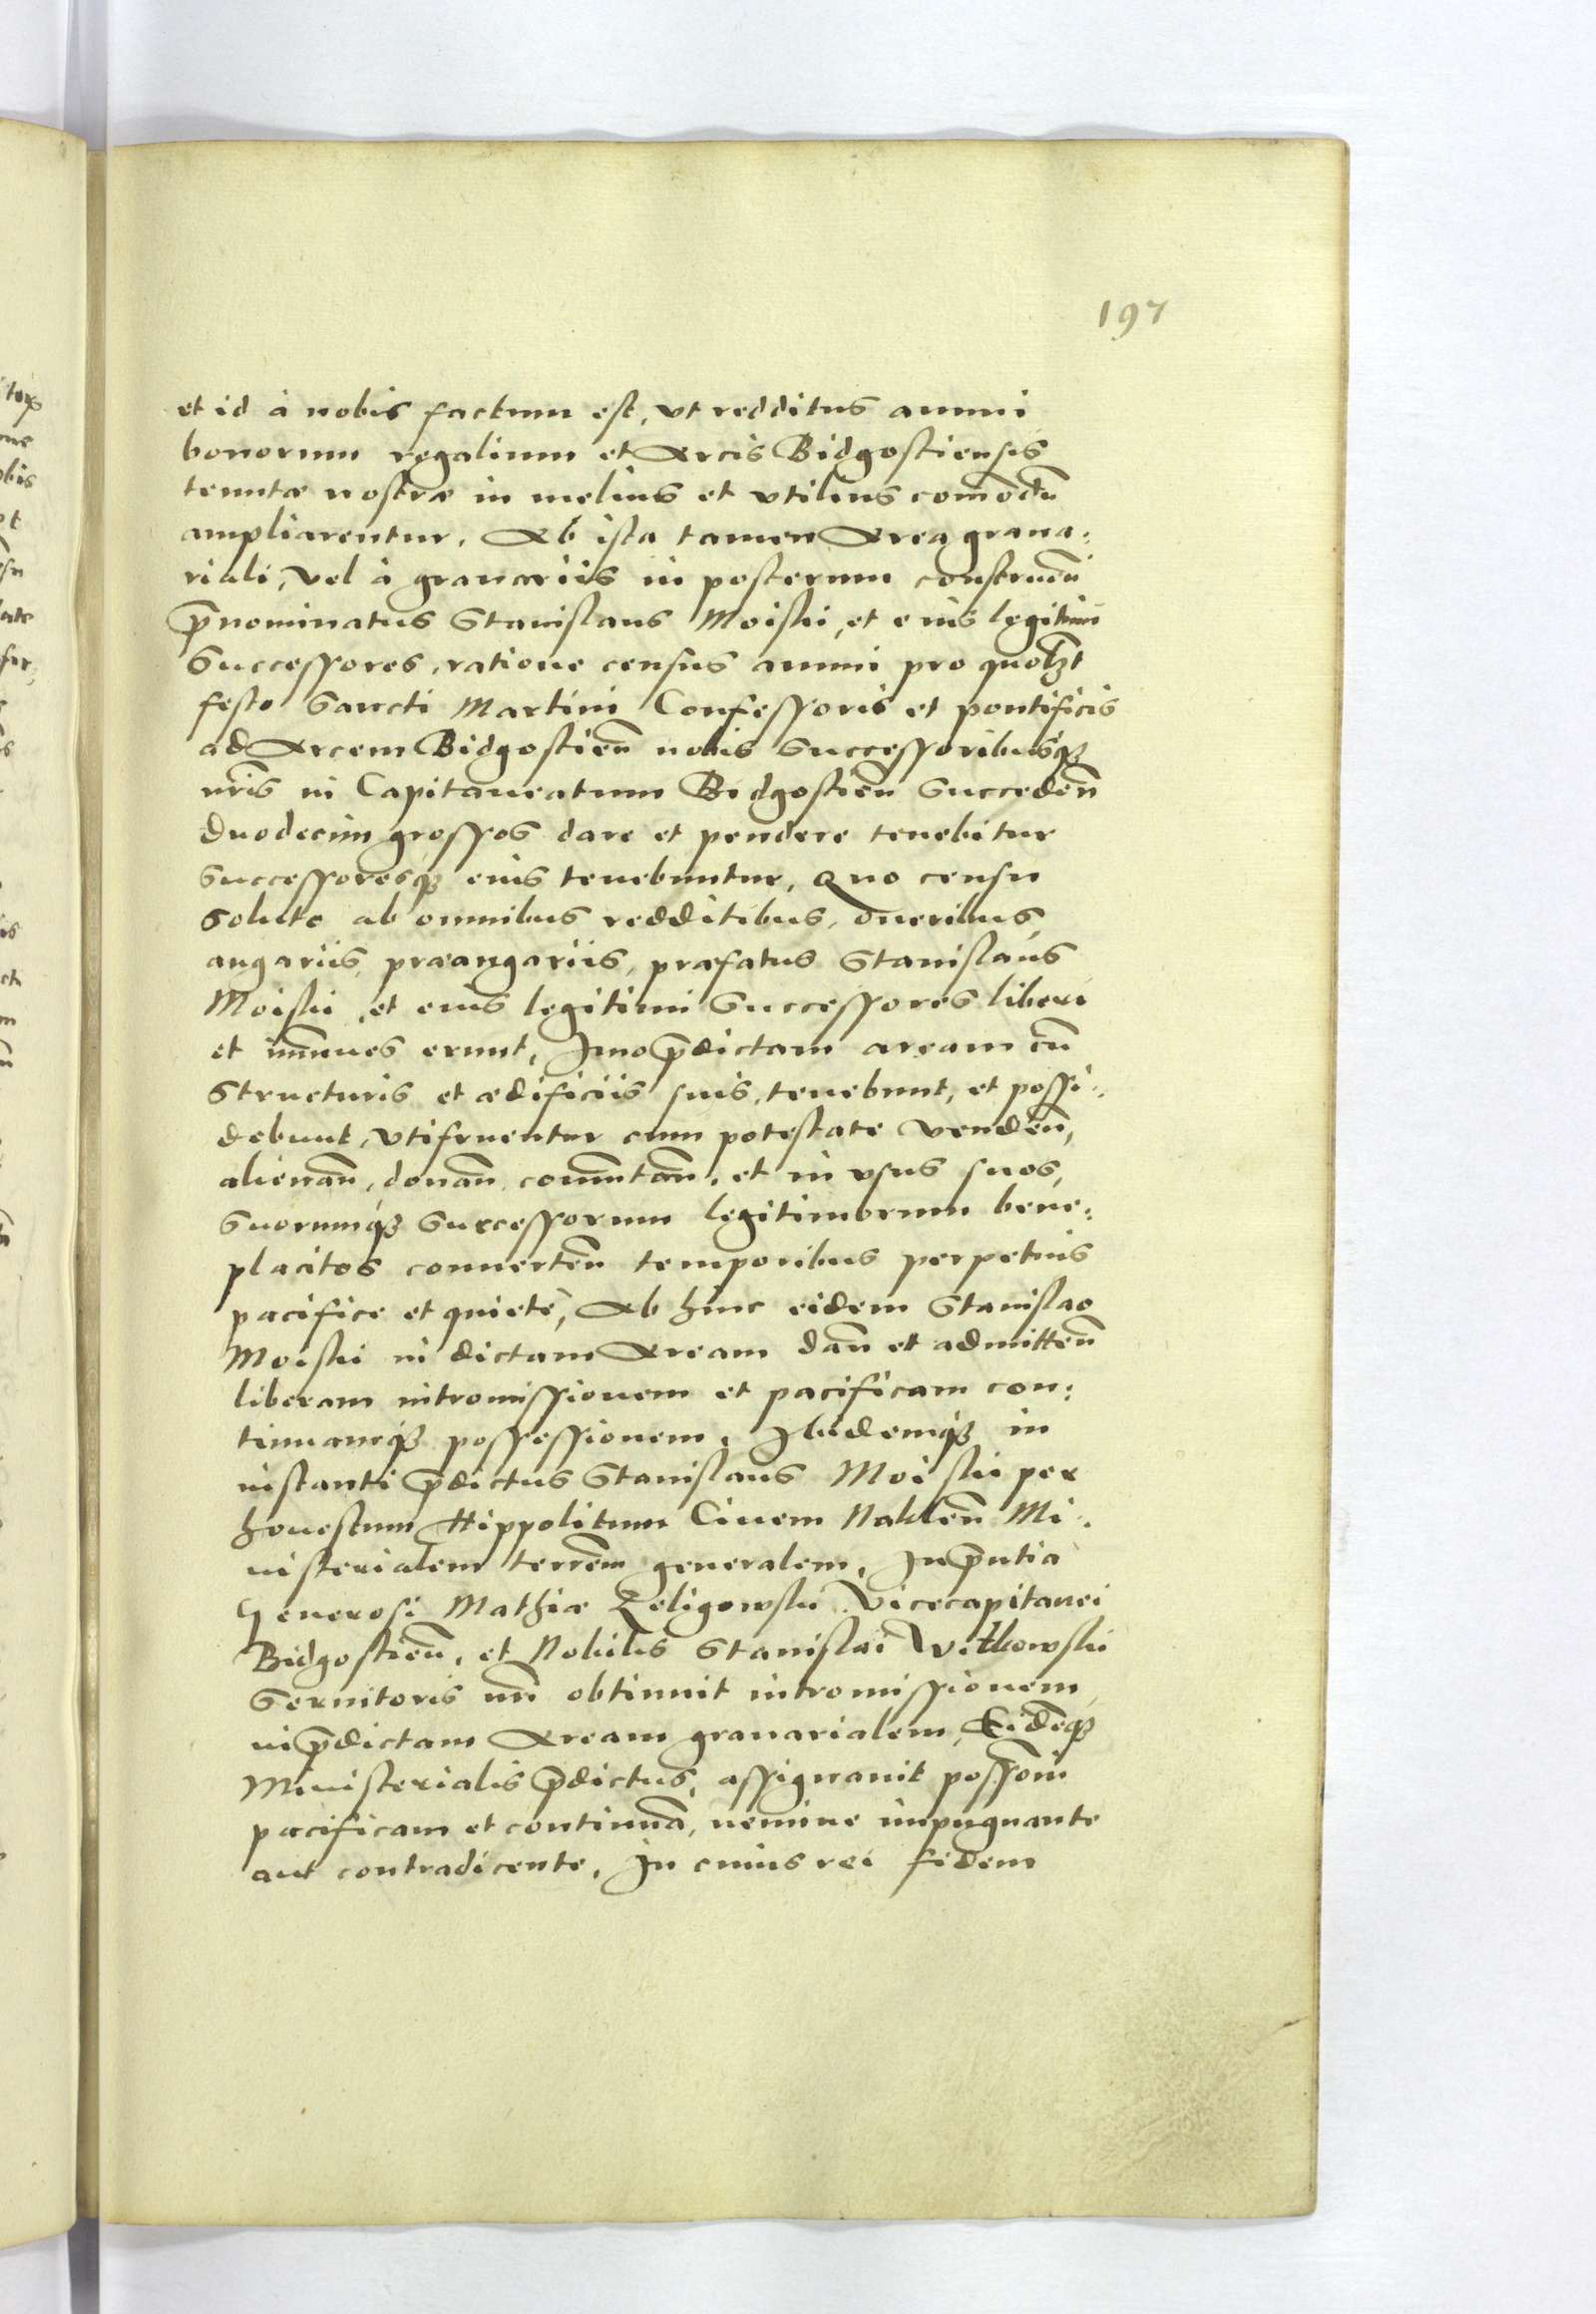 197
et id à nobis factum est, vt redditus annui
bonorum regalium et Arcis Bidgostiensis
tenutæ nostræ in melius et vtilius comodū
ampliarentur. Ab ista tamen Area grana:
riali, vel à granariis in posterum construēn
p̄nominatus Stanislaus Moiski, et eius legitimi
Successores, ratione census annui pro quolz̄t
festo Sancti Martini Confessoris et pontificis
ad Arcem Bidgostien̄ nobis Successoribusqȝ
nr̄is in Capitaneatum Bidgostien̄ Succeden̄
duodecim grossos dare et pendere tenebitur
Successoresqȝ eius tenebuntur, Quo censu
soluto ab omnibus redditibus, oneribus,
angariis, præangariis, præfatus Stanislaus
Moiski, et eius legitimi Successores liberi
et im̄unes erunt, Imo p̄dictam aream cū
Structuris et ædificiis suis, tenebunt, et possi:
debunt, vtifruentur cum potestate venden̄,
alienan̄, donan̄, com̄utan̄, et in vsus suos,
Suorumqȝ Successorum legitimorum bene:
placitos conuerten̄ temporibus perpetuis
pacifice et quietè, Ab hinc eidem Stanislao
Moiski in dictam Aream dan̄ et admitten̄
liberam intromissionem et pacificam con:
tinuamqȝ possessionem. Ibidemqȝ in
instanti p̄dictus Stanislaus Moiski per
honestum Hippolitum Ciuem Naklen̄ Mi:
nisterialem terrēm generalem, In p̄ntia
Generosi Mathiæ Zeligowski Vicecapitanei
Bidgostien̄, et Nobilis Stanislai Witkowski
Seruitoris nr̄i obtinuit intromissionem
in p̄dictam Aream granarialem, Eidēqȝ
Ministerialis p̄dictus, assignauit possōm̄
pacificam et continuā, nemine impugnante
aut contradicente. In cuius rei fidem